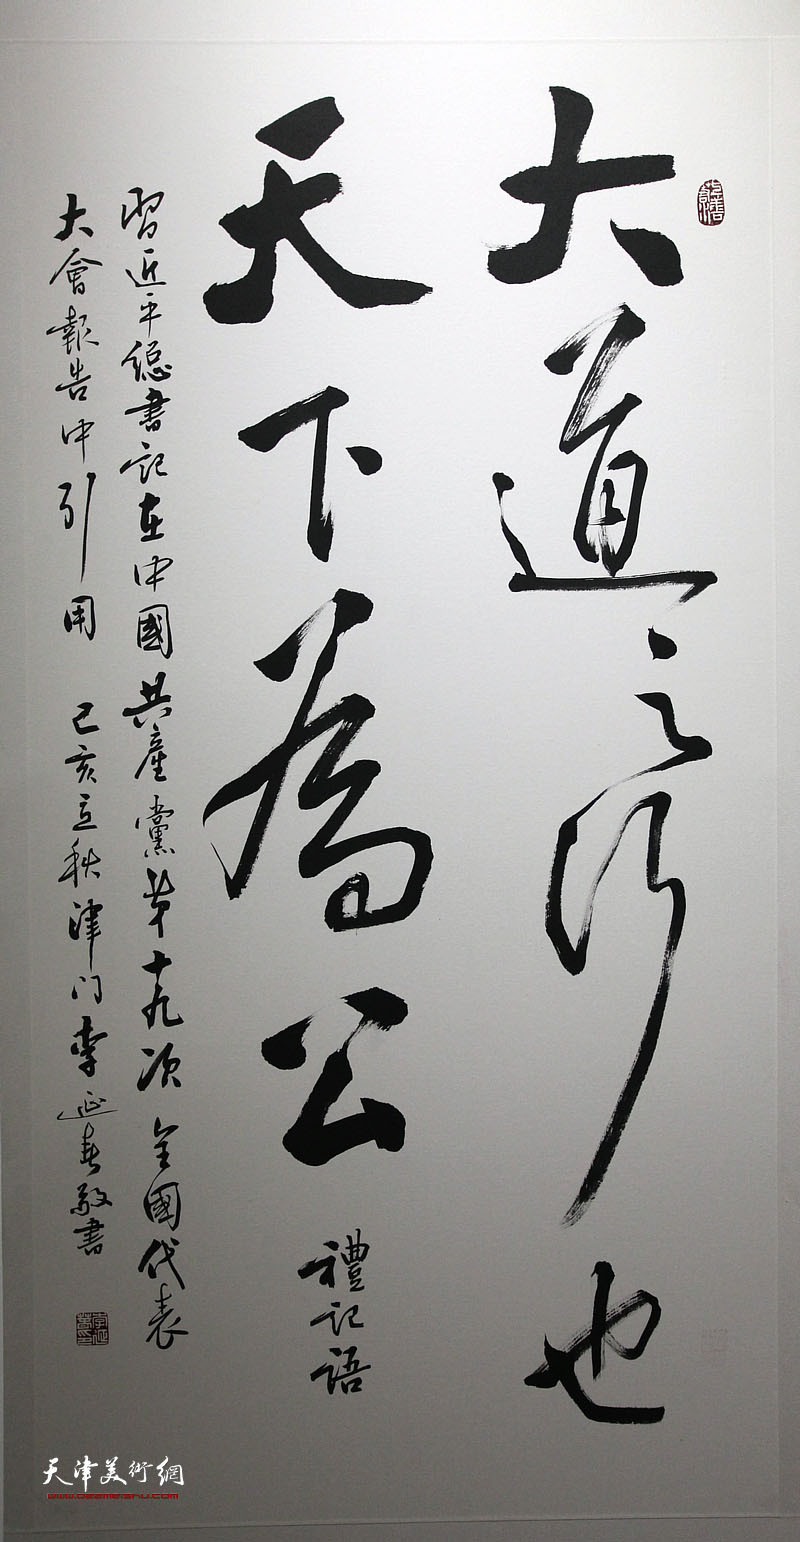 大道之行也
天下為公
禮記語
習近平總書記在中國共產黨第十九次全國代表
大會報告中引用 己亥立秋津门李延春敬書
天津美術網